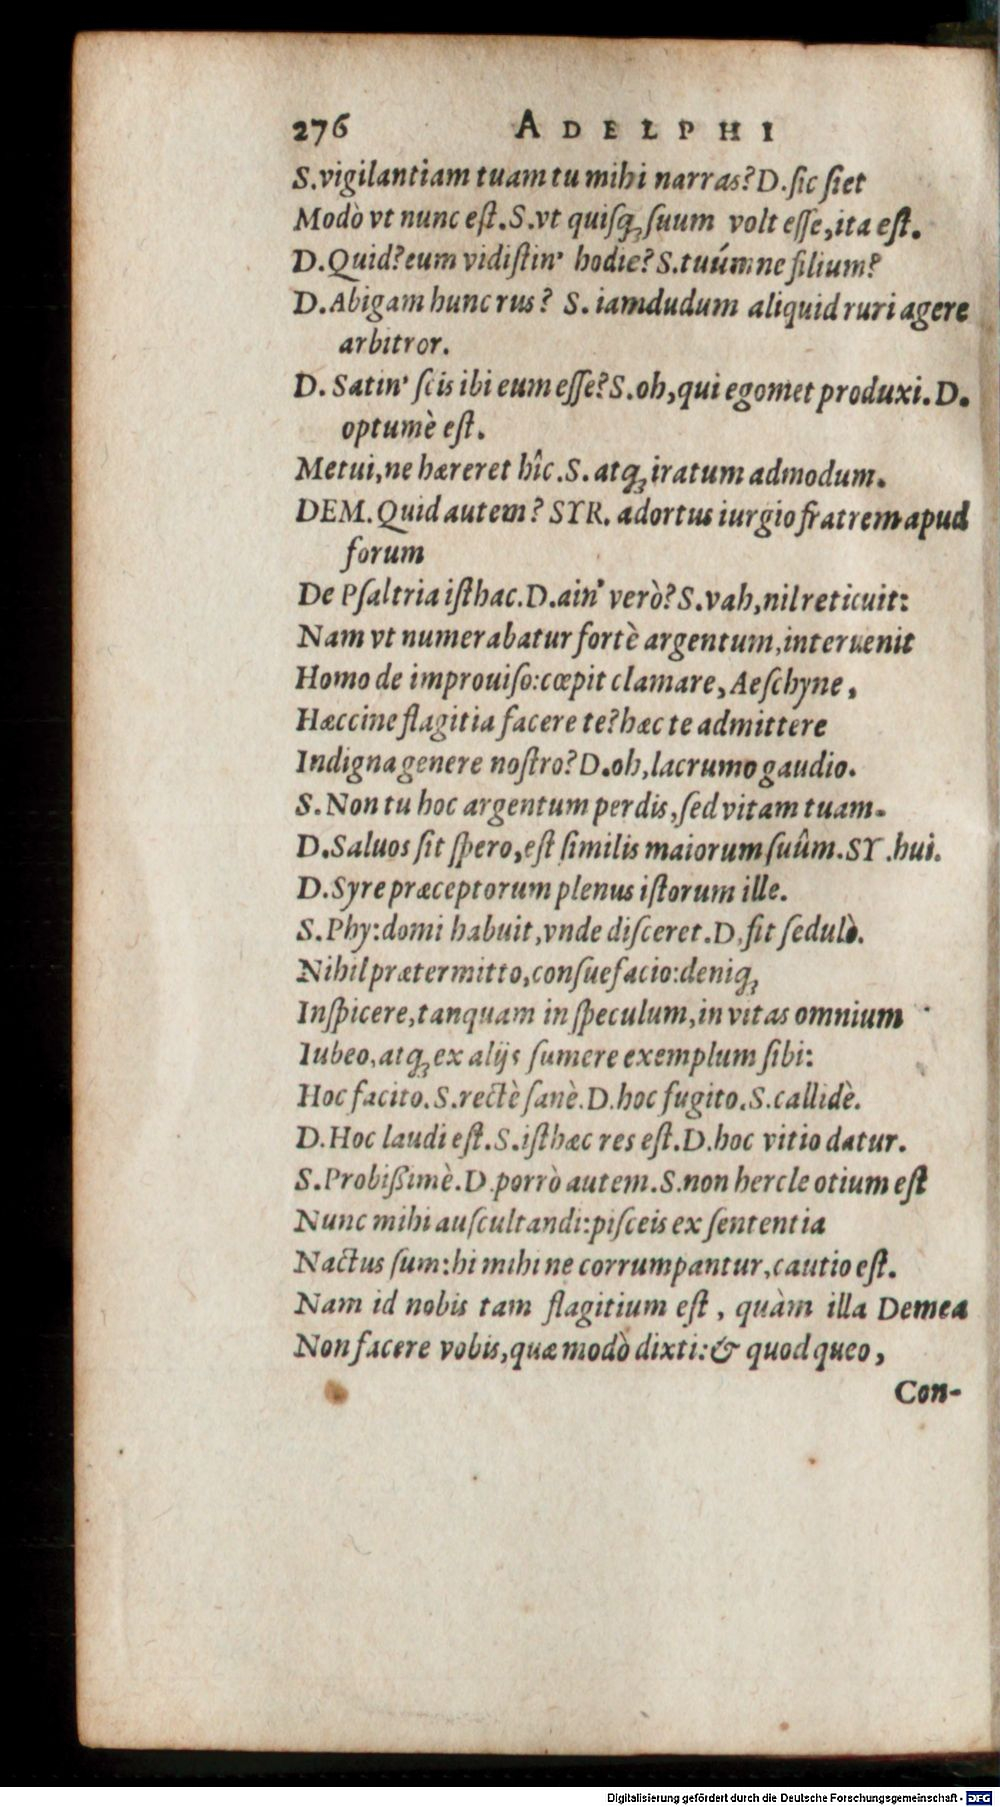 276 ADELPHI
S. vigilantiam tuam tu mihi narras? D. ſic ſiet
Modò vt nunc eſt. S. vt quiſq́ꝫ ſuum volt eſſe, ita eſt.
D. Quid? eum vidiſtin' hodie? S. tuúmne filium?
D. Abigam hunc rus? S. iamdudum aliquid ruri agere
arbitror.
D. Satin' ſcis ibi eum eſſe? S. oh, qui egomet produxi. D.
optumè eſt.
Metui, ne hæreret hîc. S. atqꝫ iratum admodum.
DEM. Quid autem? SYR. adortus iurgio fratrem apud
forum
De Pſaltria iſthac. D. ain' verò? S. vah, nil reticuit:
Nam vt numerabatur fortè argentum, interuenit
Homo de improuiſo: cœpit clamare, Aeſchyne,
Hæccine flagitia facere te? hæc te admittere
Indigna genere noſtro? D. oh, lacrumo gaudio.
S. Non tu hoc argentum perdis, ſed vitam tuam.
D. Saluos ſit ſpero, eſt ſimilis maiorum ſuûm. SY. hui.
D. Syre præceptorum plenus iſtorum ille.
S. Phy: domi habuit, vnde diſceret. D. fit ſedulò.
Nihil prætermitto, conſuefacio: deniqꝫ
Inſpicere, tanquam in ſpeculum, in vitas omnium
Iubeo, atqꝫ ex alijs ſumere exemplum ſibi:
Hoc facito. S. rectè ſanè. D. hoc fugito. S. callidè.
D. Hoc laudi eſt. S. iſthæc res eſt. D. hoc vitio datur.
S. Probißimè. D. porrò autem. S. non hercle otium eſt
Nunc mihi auſcultandi: piſceis ex ſententia
Nactus ſum: hi mihi ne corrumpantur, cautio eſt.
Nam id nobis tam flagitium eſt, quàm illa Demea
Non facere vobis, quæ modò dixti: & quod queo,
Con-
Digitalisierung gefördert durch die Deutsche Forschungsgemeinschaft - DFG